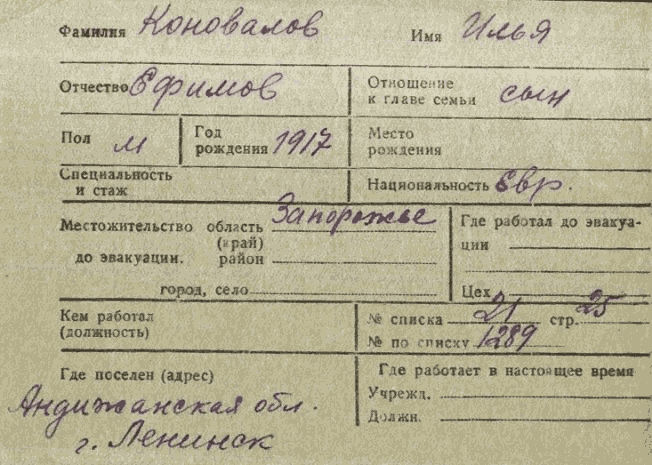 Фамилия Коновалов Имя Илья
Отчество Ефимов Отношение к главе семьи сын
Пол м Год рождения 1917 Место рождения
Специальность и стаж Национальность Евр.
Местожительство область Запорожье Где работал до эвакуа-
(край) ции
до эвакуации. район
город, село Цех
Кем работал № списка 21 стр. 25
(должность) № по списку 1289
Где поселен (адрес) Где работает в настоящее время
Андижанская обл. Учрежд.
г. Ленинск Должн.